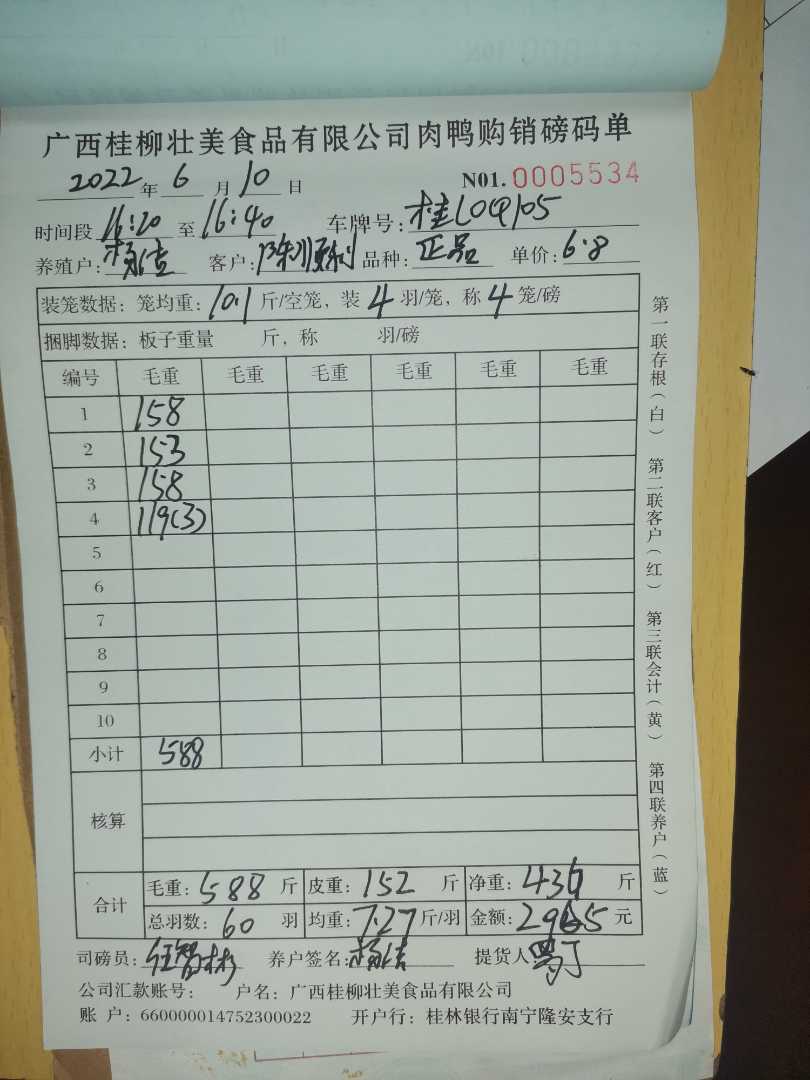 广西桂柳壮美食品有限公司肉鸭购销磅码单
2022年6月10日 N01.0005534
时间段16:20至16:40 车牌号:桂L04105
养殖户:杨洁 客户:陈顺利 品种:正品 单价:6.8
装笼数据:笼均重:10.1斤/空笼,装4羽/笼,称4笼/磅
捆脚数据:板子重量 斤,称 羽/磅
编号 毛重 毛重 毛重 毛重 毛重 毛重
1 158
2 153
3 158
4 119(3)
5
6
7
8
9
10
小计 588
核算
合计 毛重:588斤 皮重:152斤 净重:436斤
总羽数:60羽 均重:7.27斤/羽 金额:2965元
司磅员:任智彬 养户签名:杨洁 提货人:
公司汇款账号: 户名:广西桂柳壮美食品有限公司
账 户:660000014752300022 开户行:桂林银行南宁隆安支行
第一联存根(白) 第二联客户(红) 第三联会计(黄) 第四联养户(蓝)